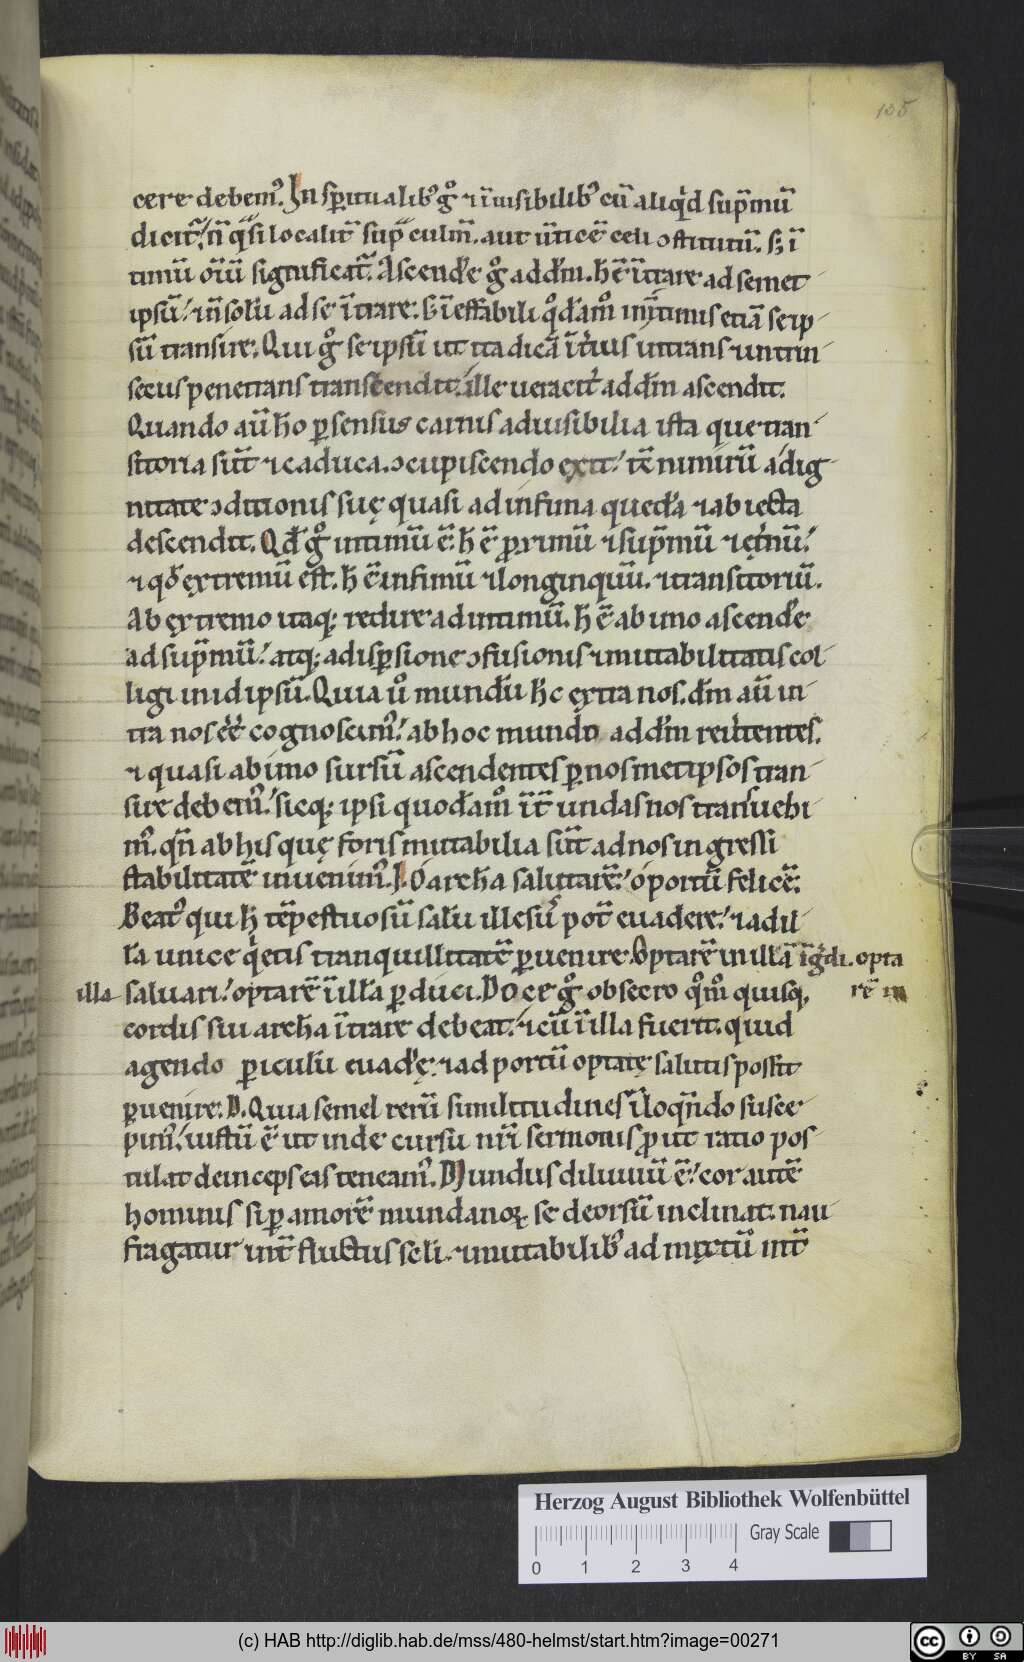 135
cere debem᷒. In sp̄itualib᷒ gͦ ⁊ īuisibilib᷒ cū aliqͥd sup̄mū
dicit᷑, n̄ qͣsi localit̄ sup̄ culm̄. aut ūticē celi ↄstitutū. sꝫ ī
timū oīū significat᷑. Ascendͤe gͦ ad dm̄. h̄ ē īt̄rare ad semet
ipsū. ⁊ n̄ solū ad se īt̄rare. sꝫ īeffabili qͦdāmͦ īn ītimis etiā seip
sū transire. Qui gͦ seipsū ut ita dicā īt̄ius intrans ⁊ intrin
secus penetrans transcendit. ille ueracit̄ ad dm̄ ascendit.
Quando aū ho ꝑ sensus carnis ad uisibilia ista que tran
sitoria sūt ⁊ caduca. ↄcupiscendo exit. tc̄ nimirū a dig
nitate ↄditionis suę quasi ad infima quedā ⁊ abiecta
descendit. Qd̄ gͦ intimū ē. h̄ ē ꝓximū ⁊ sup̄mū ⁊ et̄nū.
⁊ qd̄ extremū est. h̄ ē infimū ⁊ longinquū. ⁊ transitoriū.
Ab extremo itaqꝫ redire ad intimū. h̄ ē ab imo ascendͤe
ad sup̄mū. atqꝫ a disꝑsione ↄfusionis ⁊ mutabilitatis col
ligi in id ipsū. Quia uͦ mundū h̄c extra nos. dm̄ aū in
tra nos ēē cognoscim᷒. ab hoc mundo ad dm̄ reūtentes.
⁊ quasi ab imo sursū ascendentes ꝑ nosmetipsos tran
sire debem᷒. sicqꝫ ipsi quodāmͦ īt̄ undas nos transuehi
m᷒. qn̄ ab his quę foris mutabilia sūt ad nos ingressi
stabilitatē inuenim᷒. I. O archa salutarē. o portū felicē.
Beat᷒ qui h̄ tēpestuosū salū illesus pot̄ euadere. ⁊ ad il
lā unice qͥetis tranquillitatē ꝑuenire. Optarē in illā īgͣdi. opta
rē in
illa saluari. optarē ī illā ꝑduci. Doce gͦ obsecro qͦmͦ quisqꝫ
cordis sui archā īt̄rare debeat. ⁊ cū ī illa fuerit. quid
agendo ꝑiculū euadͤe. ⁊ ad portū optatę salutis possit
ꝑuenire. D. Quia semel rerū similitudines ī loqn̄do susce
pim᷒. iustū ē ut inde cursū nr̄i sermonis ꝓut ratio pos
tulat deinceps eas teneam᷒. Mundus diluuiū ē. cor autē
hominis si ꝑ amorē mundanoꝝ se deorsū inclinat. nau
fragatur int̄ fluctus seli. ⁊ mutabilib᷒ ad mixtū int̄
Herzog August Bibliothek Wolfenbüttel
Gray Scale
0 1 2 3 4
(c) HAB http://diglib.hab.de/mss/480-helmst/start.htm?image=00271
cc BY SA